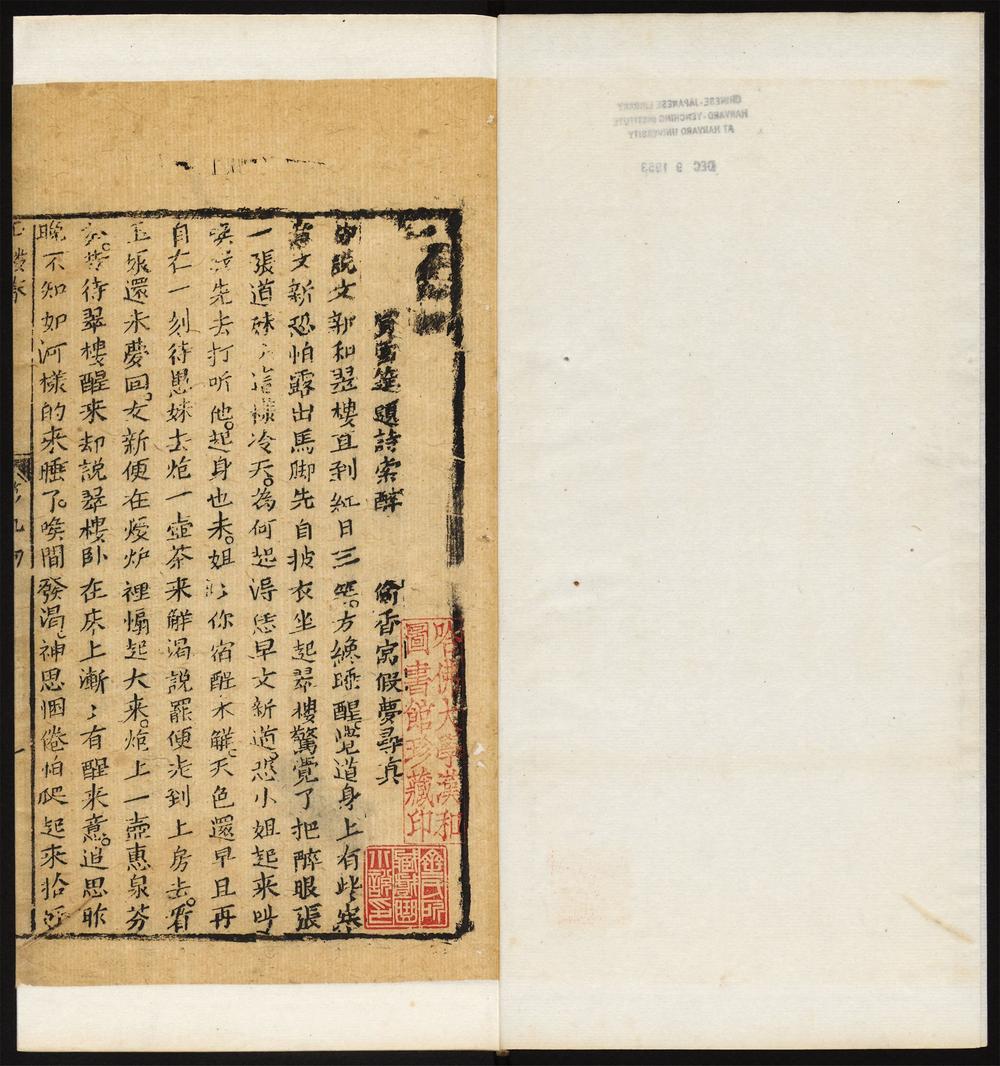 賞雪筵題詩索醉　偷香窩假夢尋真
說文新和翠樓直到紅日三竿方纔睡醒覺道身上有些寒
文新恐怕露出馬脚先自披衣坐起翠樓驚覺了把醉眼張
一張道妹這樣冷天為何起得恁早文新道恐小姐起來叫
喚先去打听他起身也未姐:你宿酲未觧天色還早且再
自在一刻待愚妹去炮一壺茶来觧渴說罷便走到上房去看
玉娘還未夢回文新便在煖炉裡煽起大来炮上一壺惠泉芬
茶待翠樓醒来却說翠樓卧在床上漸:有醒来意追思昨
晚不知如河樣的来睡了喉間發渴神思悃倦怕爬起來拾
第九回
哈佛大學漢和
圖書館珍藏印
CHINESE-JAPANESE LIBRARY
HARVARD-YENCHING INSTITUTE
AT HARVARD UNIVERSITY
DEC 9 1953